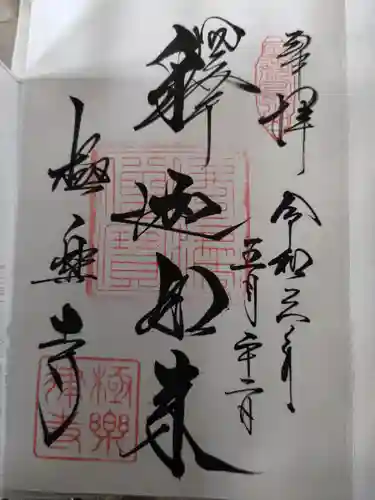 奉拝
令和六年
五月二十二日
釋迦如来
極楽寺
極樂
禅寺